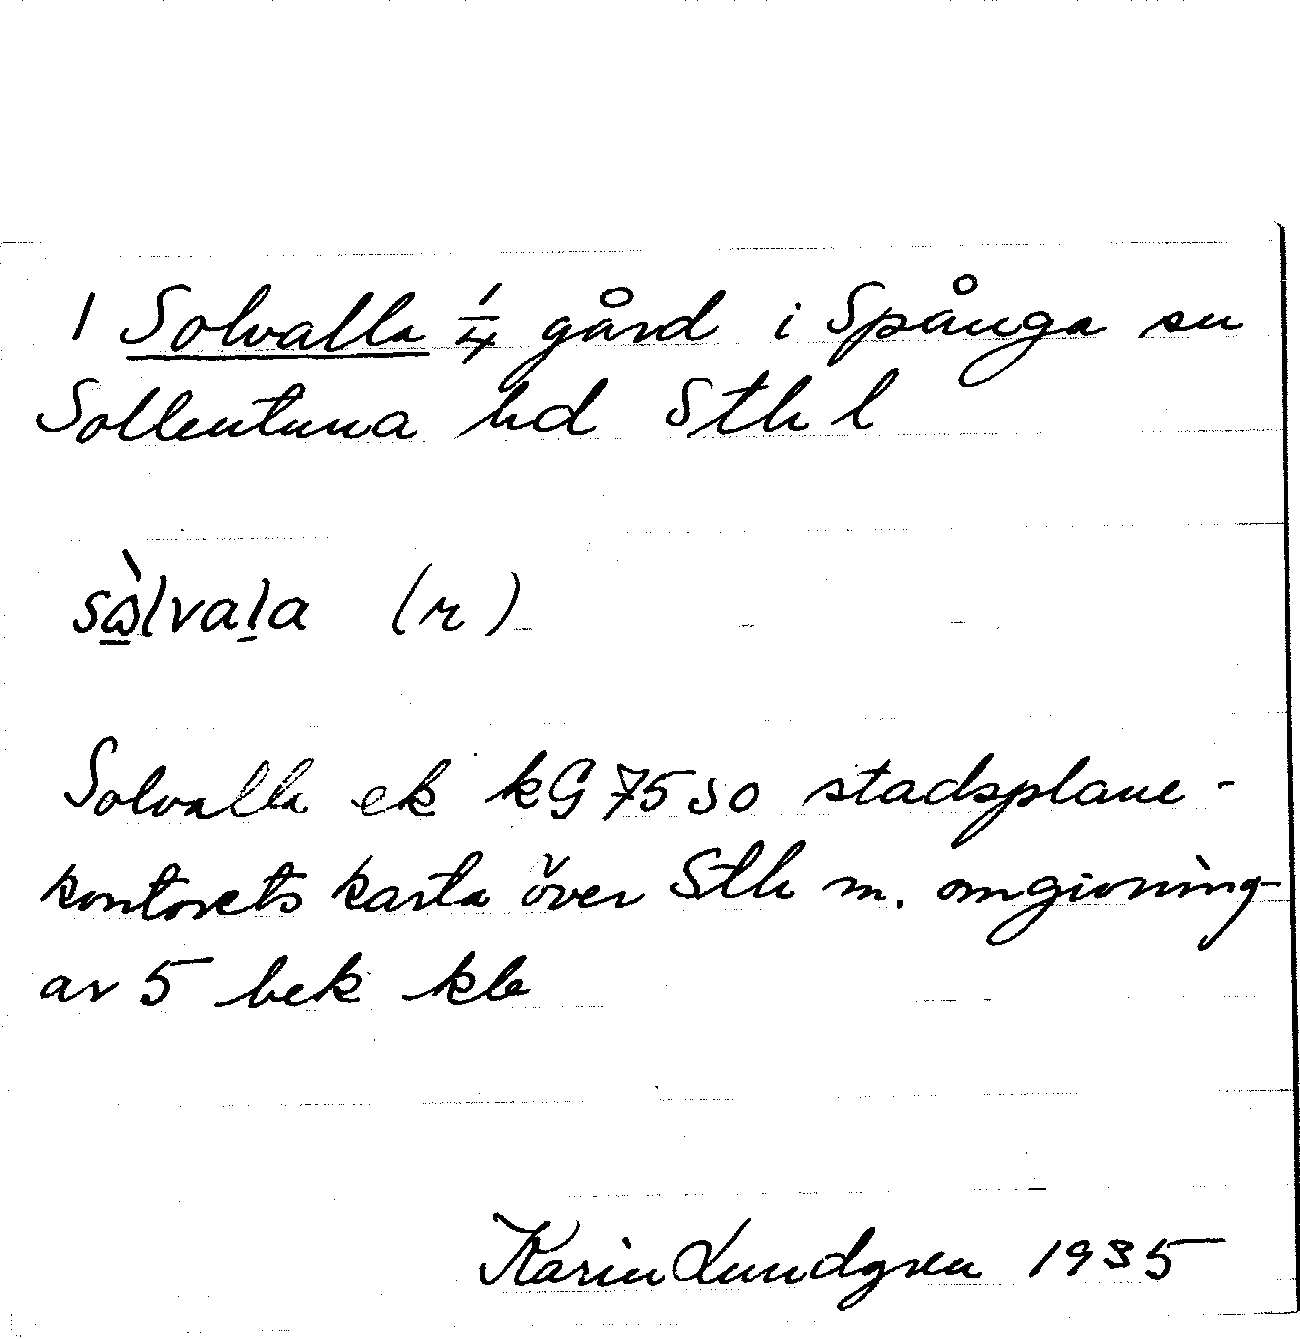 1 Solvalla 1/4 gård i Spånga sn
Sollentuna hd Sth l
sὼlvala (r)
Solvalla ek kG 75 so stadsplane-
kontorets karta över Sth m. omgivning
av 5 bek kb
Karin Lundgren 1935